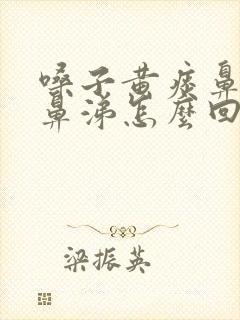 嗓子黄痰鼻
鼻涕怎麼回
梁振英